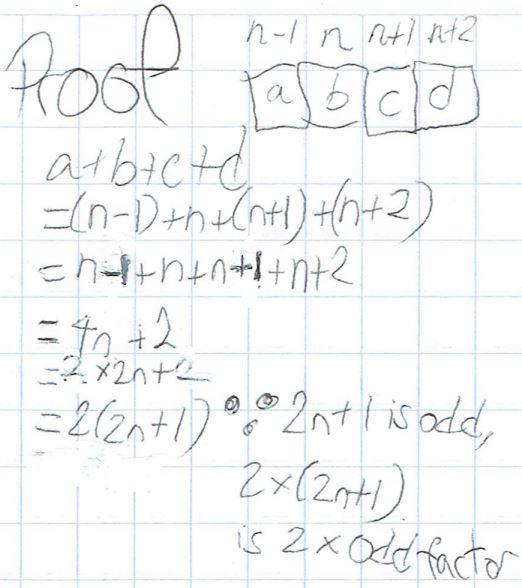 Proof
n-1 n n+1 n+2
a b c d
a+b+c+d
=(n-1)+n+(n+1)+(n+2)
=n-1+n+n+1+n+2
=4n+2
=2×2n+2
=2(2n+1) ∵ 2n+1 is odd,
2×(2n+1)
is 2×odd factor